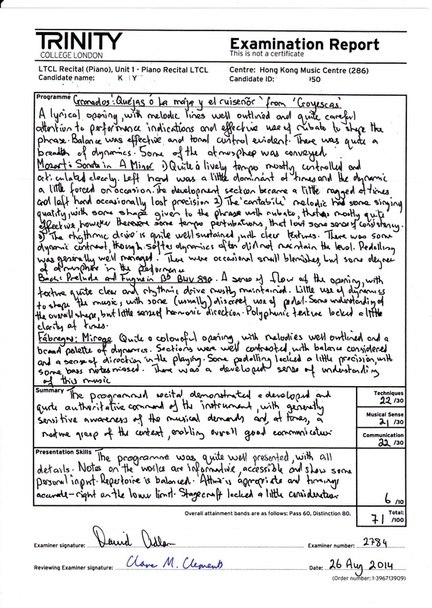 TRINITY
COLLEGE LONDON
Examination Report
This is not a certificate
LTCL Recital (Piano), Unit 1 - Piano Recital LTCL
Candidate name: K Y
Centre: Hong Kong Music Centre (286)
Candidate ID: 150
Programme
Granados: 'Quejas ó La maja y el ruiseñor' from 'Goyescas'
A lyrical opening, with melodic lines well outlined and quite careful
attention to performance indications and effective use of rubato to shape the
phrase. Balance was effective and tonal control evident. There was quite a
breadth of dynamics. Some of the atmosphere was conveyed.
Mozart: Sonata in A Minor 1) Quite a lively tempo, mostly controlled and
articulated clearly. Left hand was a little dominant at times and the dynamic
a little forced on occasion. The development section became a little ragged at times
and left hand occasionally lost precision 2) The 'cantabile' melodic had some singing
quality, with some shape given to the phrase with rubato, that was mostly quite
effective however there were some tempo perturbations, that lost some sense of consistency.
3) The rhythmic drive is quite well sustained, with clear textures. There was some
dynamic contrast, though softer dynamics often did not maintain the level. Pedalling
was generally well managed. There were occasional small blemishes but some degree
of atmosphere in the performance
Bach: Prelude and Fugue in Bb BWV 890. A sense of flow at the opening, with
texture quite clear and rhythmic drive mostly maintained. Little use of dynamics
to shape the music, with some (usually) discreet use of pedal. Some understanding of
the overall shape, but little sense of harmonic direction. Polyphonic texture lacked a little
clarity at times.
Fabregas: Mirage Quite a colourful opening, with melodies well outlined and a
broad palette of dynamics. Sections were well contrasted with balance considered
and a sense of direction in the playing. Some pedalling lacked a little precision, with
some bass notes missed. There was a developed sense of understanding
of this music
Summary
The programmed recital demonstrated a developed and
quite authoritative command of the instrument, with generally
sensitive awareness of the musical demands and, at times, a
mature grasp of the content, enabling overall good communication
Techniques
22 /30
Musical Sense
21 /30
Communication
22 /30
Presentation Skills
The programme was quite well presented, with all
details. Notes on the works are informative, accessible and show some
personal input. Repertoire is balanced. Attire is appropriate and timings
accurate - right on the lower limit. Stagecraft lacked a little consideration
6 /10
Overall attainment bands are as follows: Pass 60, Distinction 80.
Total:
71 /100
Examiner signature:
Examiner number: 2784
Reviewing Examiner signature: Clare M. Clements
Date: 26 Aug 2014
(Order number: 1-396713909)